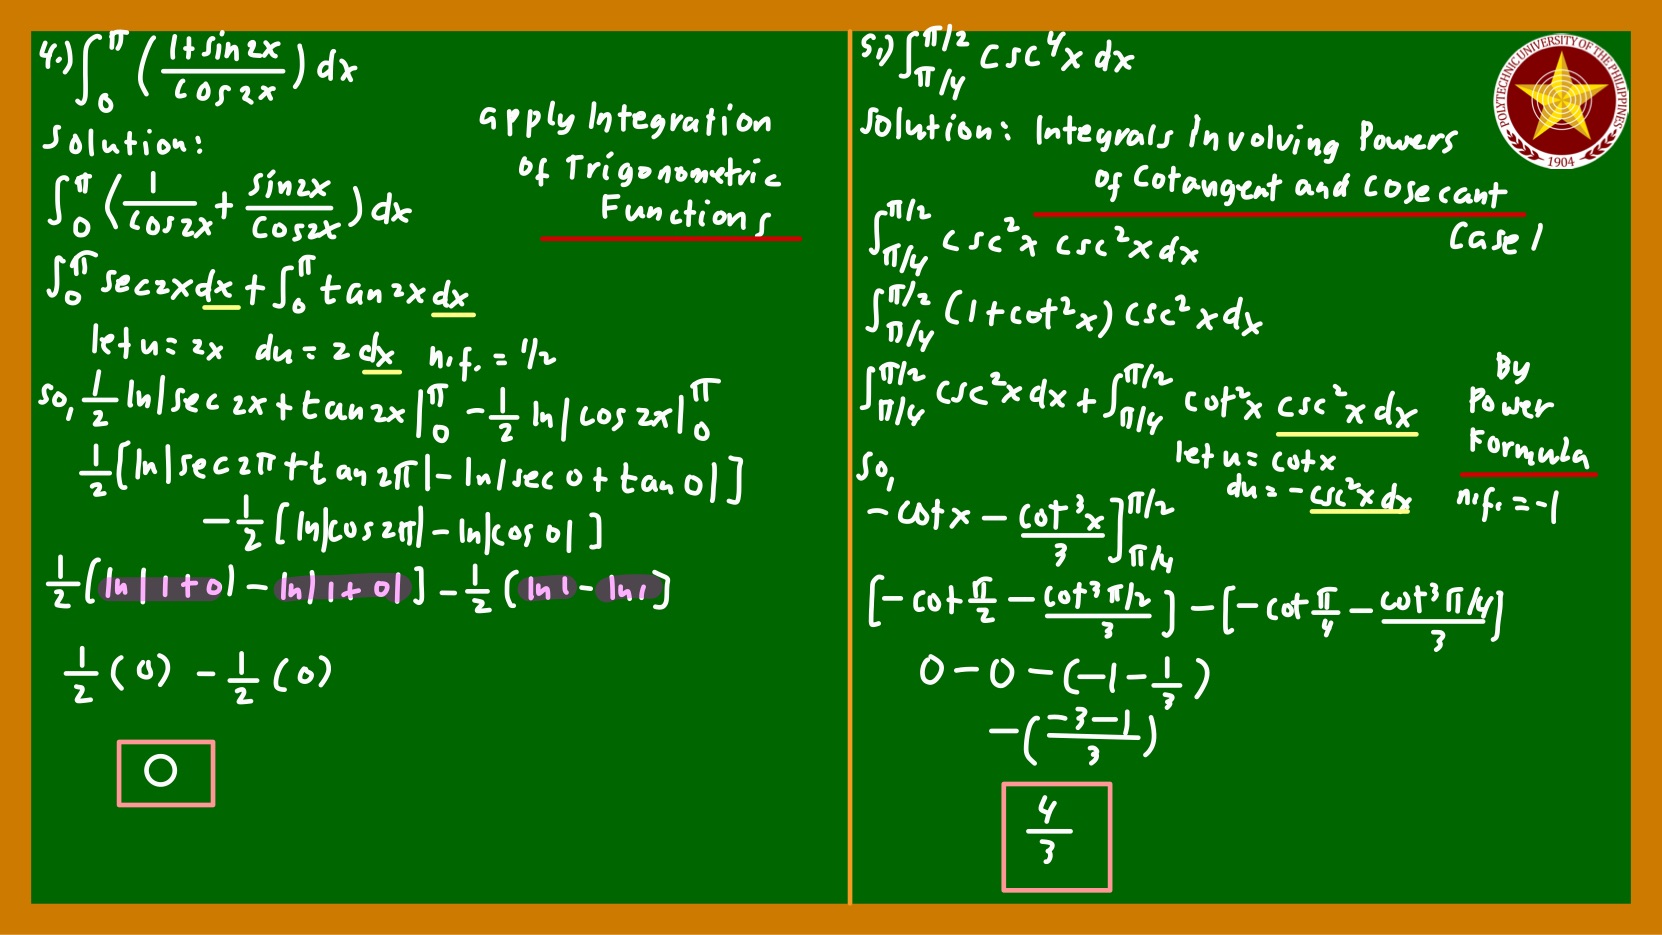 4.) ∫₀^π ( (1+sin2x)/(cos2x) ) dx
Solution:
apply Integration
of Trigonometric
Functions
∫₀^π ( 1/cos2x + sin2x/cos2x ) dx
∫₀^π sec2x dx + ∫₀^π tan2x dx
let u = 2x du = 2 dx n.f. = 1/2
so, 1/2 ln|sec2x+tan2x|₀^π - 1/2 ln|cos2x|₀^π
1/2 [ln|sec2π+tan2π| - ln|sec0+tan0|]
-1/2 [ln|cos2π| - ln|cos0|]
1/2 [ln|1+0| - ln|1+0|] - 1/2 (ln1 - ln1]
1/2 (0) - 1/2 (0)
0
5.) ∫_{π/4}^{π/2} csc⁴x dx
Solution: Integrals Involving Powers
of Cotangent and Cosecant
Case 1
∫_{π/4}^{π/2} csc²x csc²x dx
∫_{π/4}^{π/2} (1+cot²x) csc²x dx
∫_{π/4}^{π/2} csc²x dx + ∫_{π/4}^{π/2} cot²x csc²x dx
By
Power
Formula
let u = cotx
du = -csc²x dx n.f. = -1
so,
-cotx - cot³x/3 ]_{π/4}^{π/2}
[-cot π/2 - (cot³ π/2)/3] - [-cot π/4 - (cot³ π/4)/3]
0 - 0 - (-1 - 1/3)
-( (-3-1)/3 )
4/3
POLYTECHNIC UNIVERSITY OF THE PHILIPPINES
1904